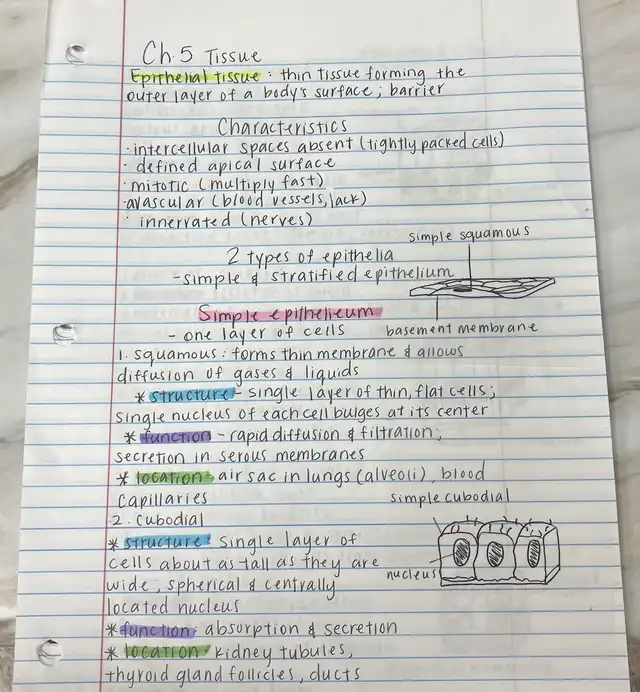 Ch.5 Tissue
Epithelial tissue: thin tissue forming the
outer layer of a body's surface; barrier
Characteristics
· intercellular spaces absent (tightly packed cells)
· defined apical surface
· mitotic (multiply fast)
· avascular (blood vessels, lack)
· innervated (nerves)
simple squamous
2 types of epithelia
- simple & stratified epithelium
Simple epithelieum
- one layer of cells
basement membrane
1. squamous: forms thin membrane & allows
diffusion of gases & liquids
* structure - single layer of thin, flat cells;
single nucleus of each cell bulges at its center
* function - rapid diffusion & filtration;
secretion in serous membranes
* location: air sac in lungs (alveoli), blood
capillaries
simple cubodial
2. cubodial
* structure: single layer of
cells about as tall as they are
nucleus
wide; spherical & centrally
located nucleus
* function: absorption & secretion
* location: kidney tubules,
thyroid gland follicles, ducts